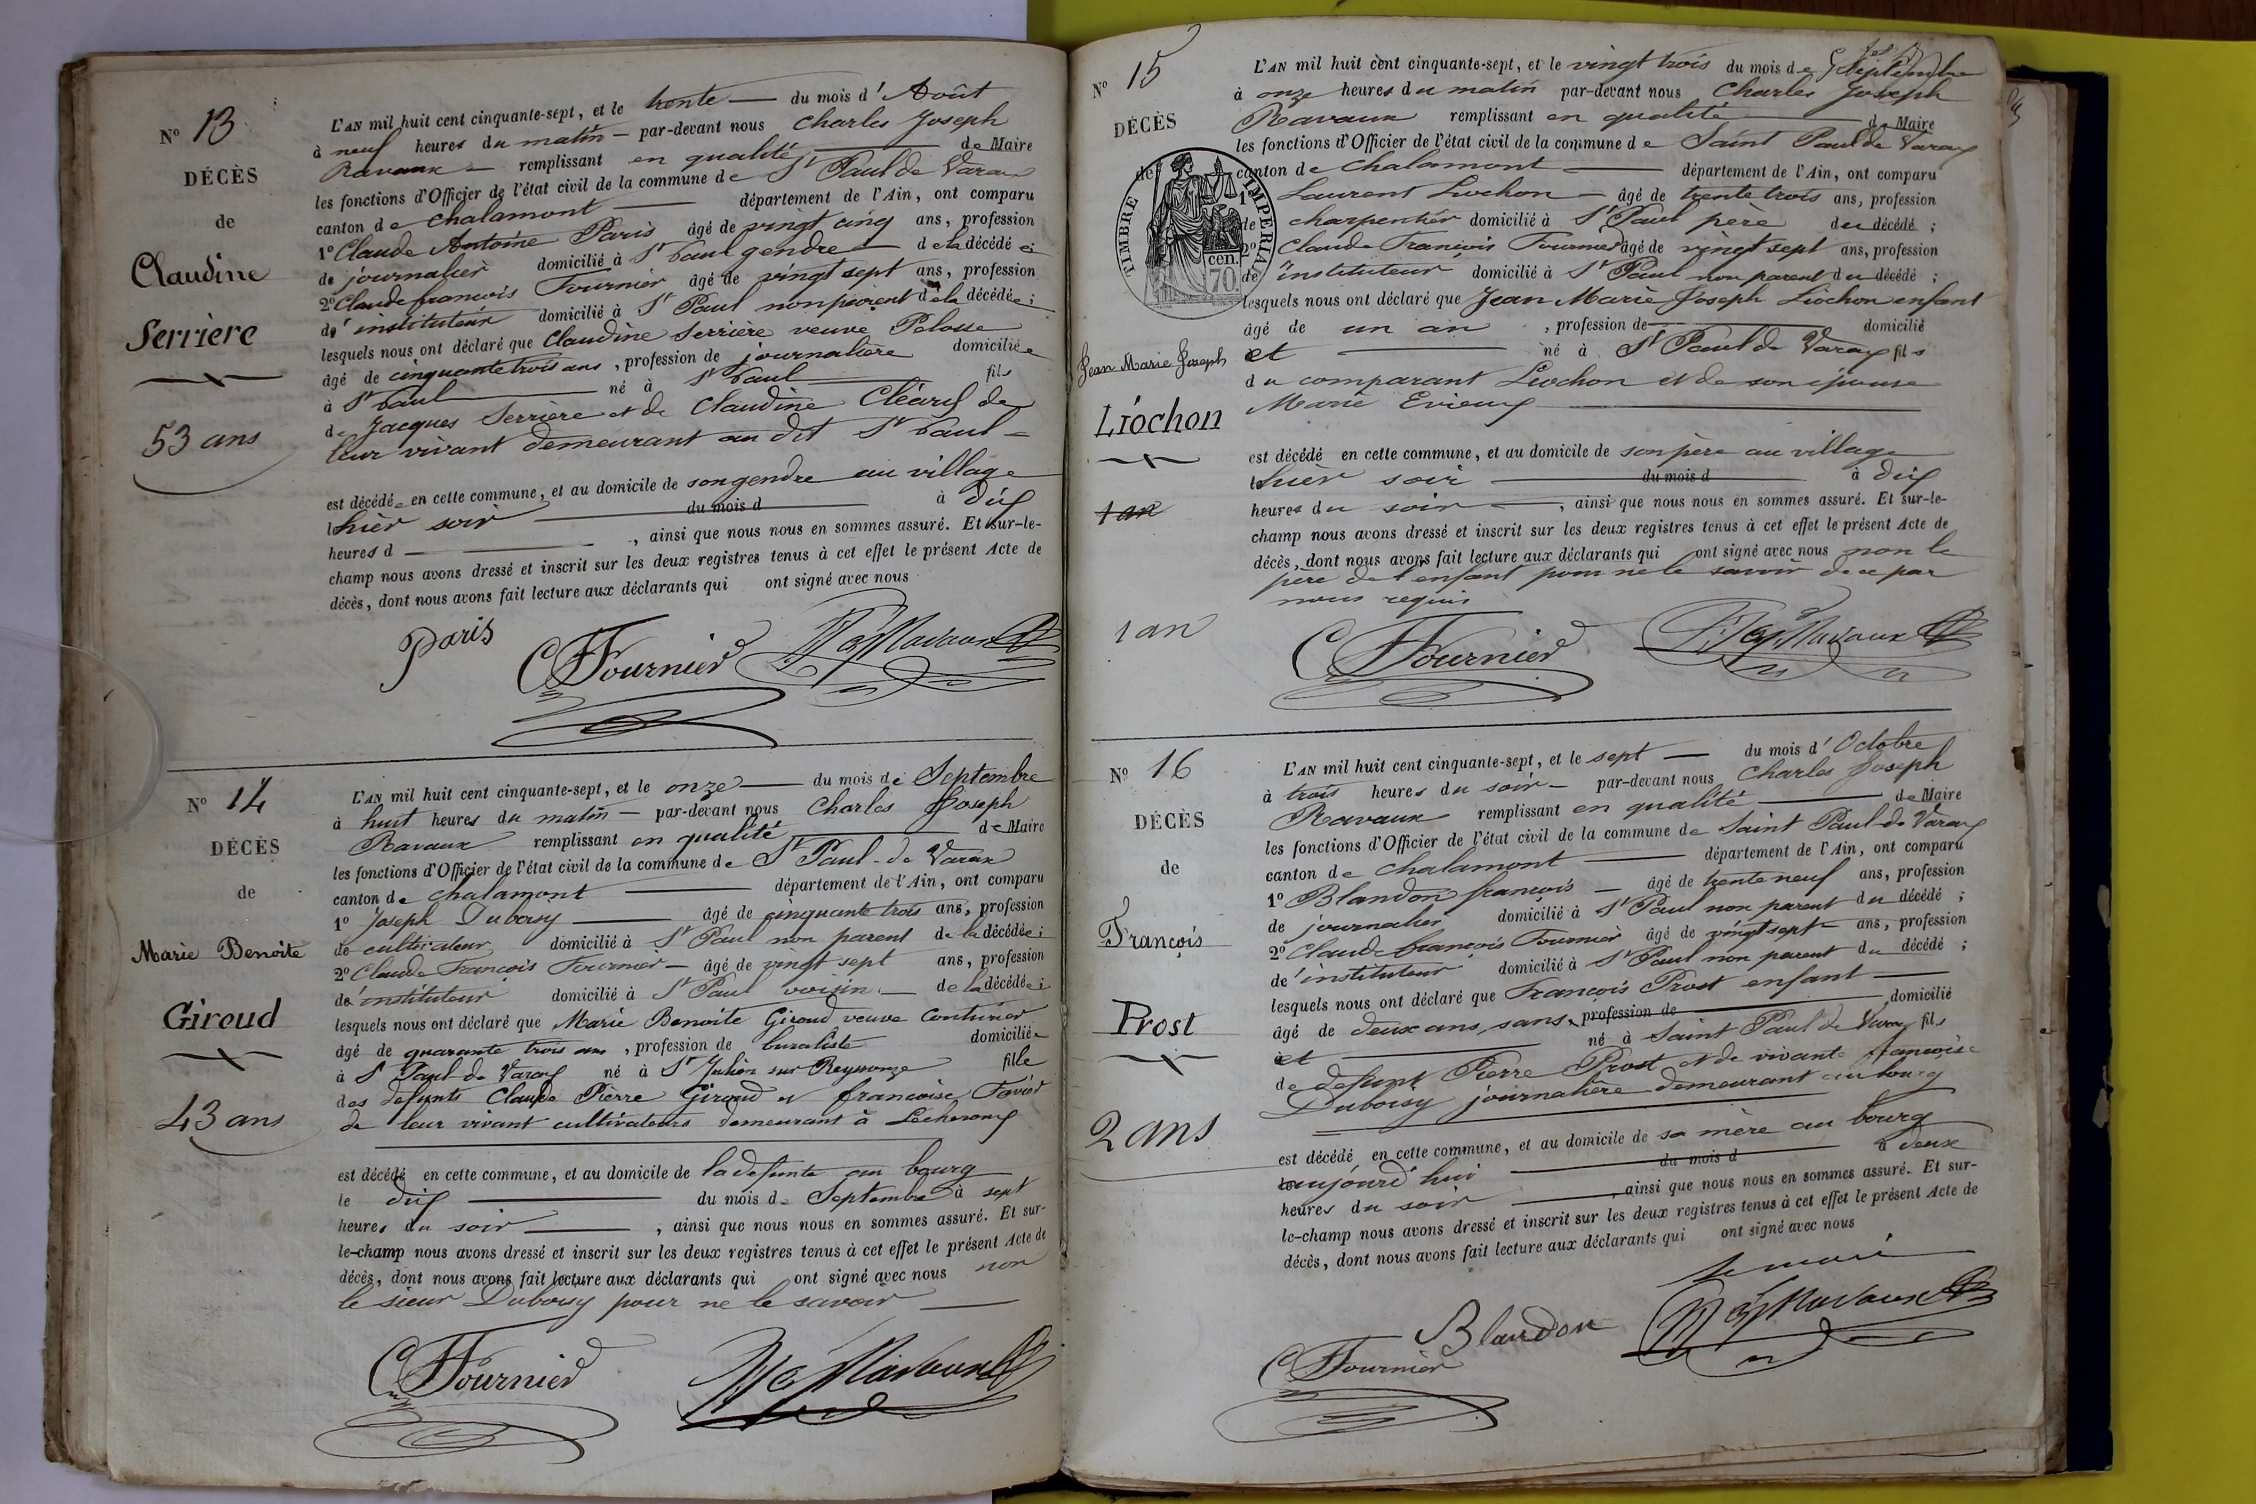 Nº 13
DÉCÈS
de
Claudine
Serrière
53 ans
L'AN mil huit cent cinquante-sept, et le trente du mois d'Août
à neuf heures du matin par-devant nous Charles Joseph
Ravaux remplissant en qualité de Maire
les fonctions d'Officier de l'état civil de la commune de St Paul de Varax
canton de Chalamont département de l'Ain, ont comparu
1º Claude Antoine Paris âgé de vingt cinq ans, profession
de journalier domicilié à St Paul gendre de la décédée
2º Claude françois Fournier âgé de vingt sept ans, profession
d'instituteur domicilié à St Paul non parent de la décédée ;
lesquels nous ont déclaré que Claudine Serrière veuve Pelosse
âgé de cinquante trois ans, profession de journalière domiciliée
à St Paul né à St Paul fils
de Jacques Serrière et de Claudine de
leur vivant demeurant au dit St Paul
est décédée en cette commune, et au domicile de son gendre au village
hier soir du mois d à dix
heures d , ainsi que nous nous en sommes assuré. Et sur-le-
champ nous avons dressé et inscrit sur les deux registres tenus à cet effet le présent Acte de
décès, dont nous avons fait lecture aux déclarants qui ont signé avec nous
Paris CFournier Ravaux
Nº 14
DÉCÈS
de
Marie Benoite
Giroud
43 ans
L'AN mil huit cent cinquante-sept, et le onze du mois de Septembre
à huit heures du matin par-devant nous Charles Joseph
Ravaux remplissant en qualité de Maire
les fonctions d'Officier de l'état civil de la commune de St Paul de Varax
canton de Chalamont département de l'Ain, ont comparu
1º Joseph Duborsy âgé de cinquante trois ans, profession
de cultivateur domicilié à St Paul non parent de la décédée ;
2º Claude François Fournier âgé de vingt sept ans, profession
d'instituteur domicilié à St Paul voisin de la décédée ;
lesquels nous ont déclaré que Marie Benoite Giroud veuve Conturier
âgé de quarante trois ans, profession de buraliste domiciliée
à St Paul de Varax né à St Julien sur Reyssouze fille
des defunts Claude Pierre Giroud et françoise Favier
de leur vivant cultivateurs demeurant à Lescheroux
est décédé en cette commune, et au domicile de la defunte au bourg
le dix du mois de Septembre à sept
heures du soir , ainsi que nous nous en sommes assuré. Et sur-
le-champ nous avons dressé et inscrit sur les deux registres tenus à cet effet le présent Acte de
décès, dont nous avons fait lecture aux déclarants qui ont signé avec nous non
le sieur Duborsy pour ne le savoir
CFournier Ravaux
Nº 15
DÉCÈS
de
TIMBRE IMPERIAL
70 cen.
Jean Marie Joseph
Liochon
1 an
1 an
L'AN mil huit cent cinquante-sept, et le vingt trois du mois de Septembre
à onze heures du matin par-devant nous Charles Joseph
Ravaux remplissant en qualité de Maire
les fonctions d'Officier de l'état civil de la commune de Saint Paul de Varax
canton de Chalamont département de l'Ain, ont comparu
1º Laurent Liochon âgé de trente trois ans, profession
de charpentier domicilié à St Paul père du décédé ;
2º Claude François Fournier âgé de vingt sept ans, profession
de instituteur domicilié à St Paul non parent du décédé ;
lesquels nous ont déclaré que Jean Marie Joseph Liochon enfant
âgé de un an , profession de domicilié
et né à St Paul de Varax fils
du comparant Liochon et de son épouse
Marie Evieux
est décédé en cette commune, et au domicile de son père au village
hier soir du mois d à dix
heures du soir , ainsi que nous nous en sommes assuré. Et sur-le-
champ nous avons dressé et inscrit sur les deux registres tenus à cet effet le présent Acte de
décès, dont nous avons fait lecture aux déclarants qui ont signé avec nous non le
père de l'enfant pour ne le savoir de ce par
nous requis
CFournier Ravaux
Nº 16
DÉCÈS
de
François
Prost
2 ans
L'AN mil huit cent cinquante-sept, et le sept du mois d'Octobre
à trois heures du soir par-devant nous Charles Joseph
Ravaux remplissant en qualité de Maire
les fonctions d'Officier de l'état civil de la commune de Saint Paul de Varax
canton de Chalamont département de l'Ain, ont comparu
1º Blandon françois âgé de trente neuf ans, profession
de journalier domicilié à St Paul non parent du décédé ;
2º Claude françois Fournier âgé de vingt sept ans, profession
de instituteur domicilié à St Paul non parent du décédé ;
lesquels nous ont déclaré que François Prost enfant
âgé de deux ans, sans profession de domicilié
et né à Saint Paul de Varax fils
de defunt Pierre Prost et de vivante françoise
Duborsy journalière demeurant au bourg
est décédé en cette commune, et au domicile de sa mère au bourg
aujourd'hui du mois d à deux
heures du soir , ainsi que nous nous en sommes assuré. Et sur-
le-champ nous avons dressé et inscrit sur les deux registres tenus à cet effet le présent Acte de
décès, dont nous avons fait lecture aux déclarants qui ont signé avec nous
le maire
Blandon Ravaux
CFournier